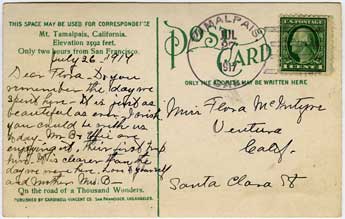 THIS SPACE MAY BE USED FOR CORRESPONDENCE
Mt. Tamalpais, California.
Elevation 2592 feet.
Only two hours from San Francisco.
July 26 - 1914
Dear Flora - Do you
remember the day we
spent here - It is just as
beautiful as ever & wish
you could be with us
today. Mr B & Effie are
enjoying it, their first trip
here. It is clearer than the
day we were here, Love to yourself
and Mother Mrs. B -
On the road of a Thousand Wonders.
PUBLISHED BY CARDINELL-VINCENT CO. SAN FRANCISCO, LOS ANGELES.
POST CARD
TAMALPAIS
JUL
27
CAL.
ONLY THE ADDRESS MAY BE WRITTEN HERE
Miss Flora McIntyre
Ventura
Calif.
Santa Clara St